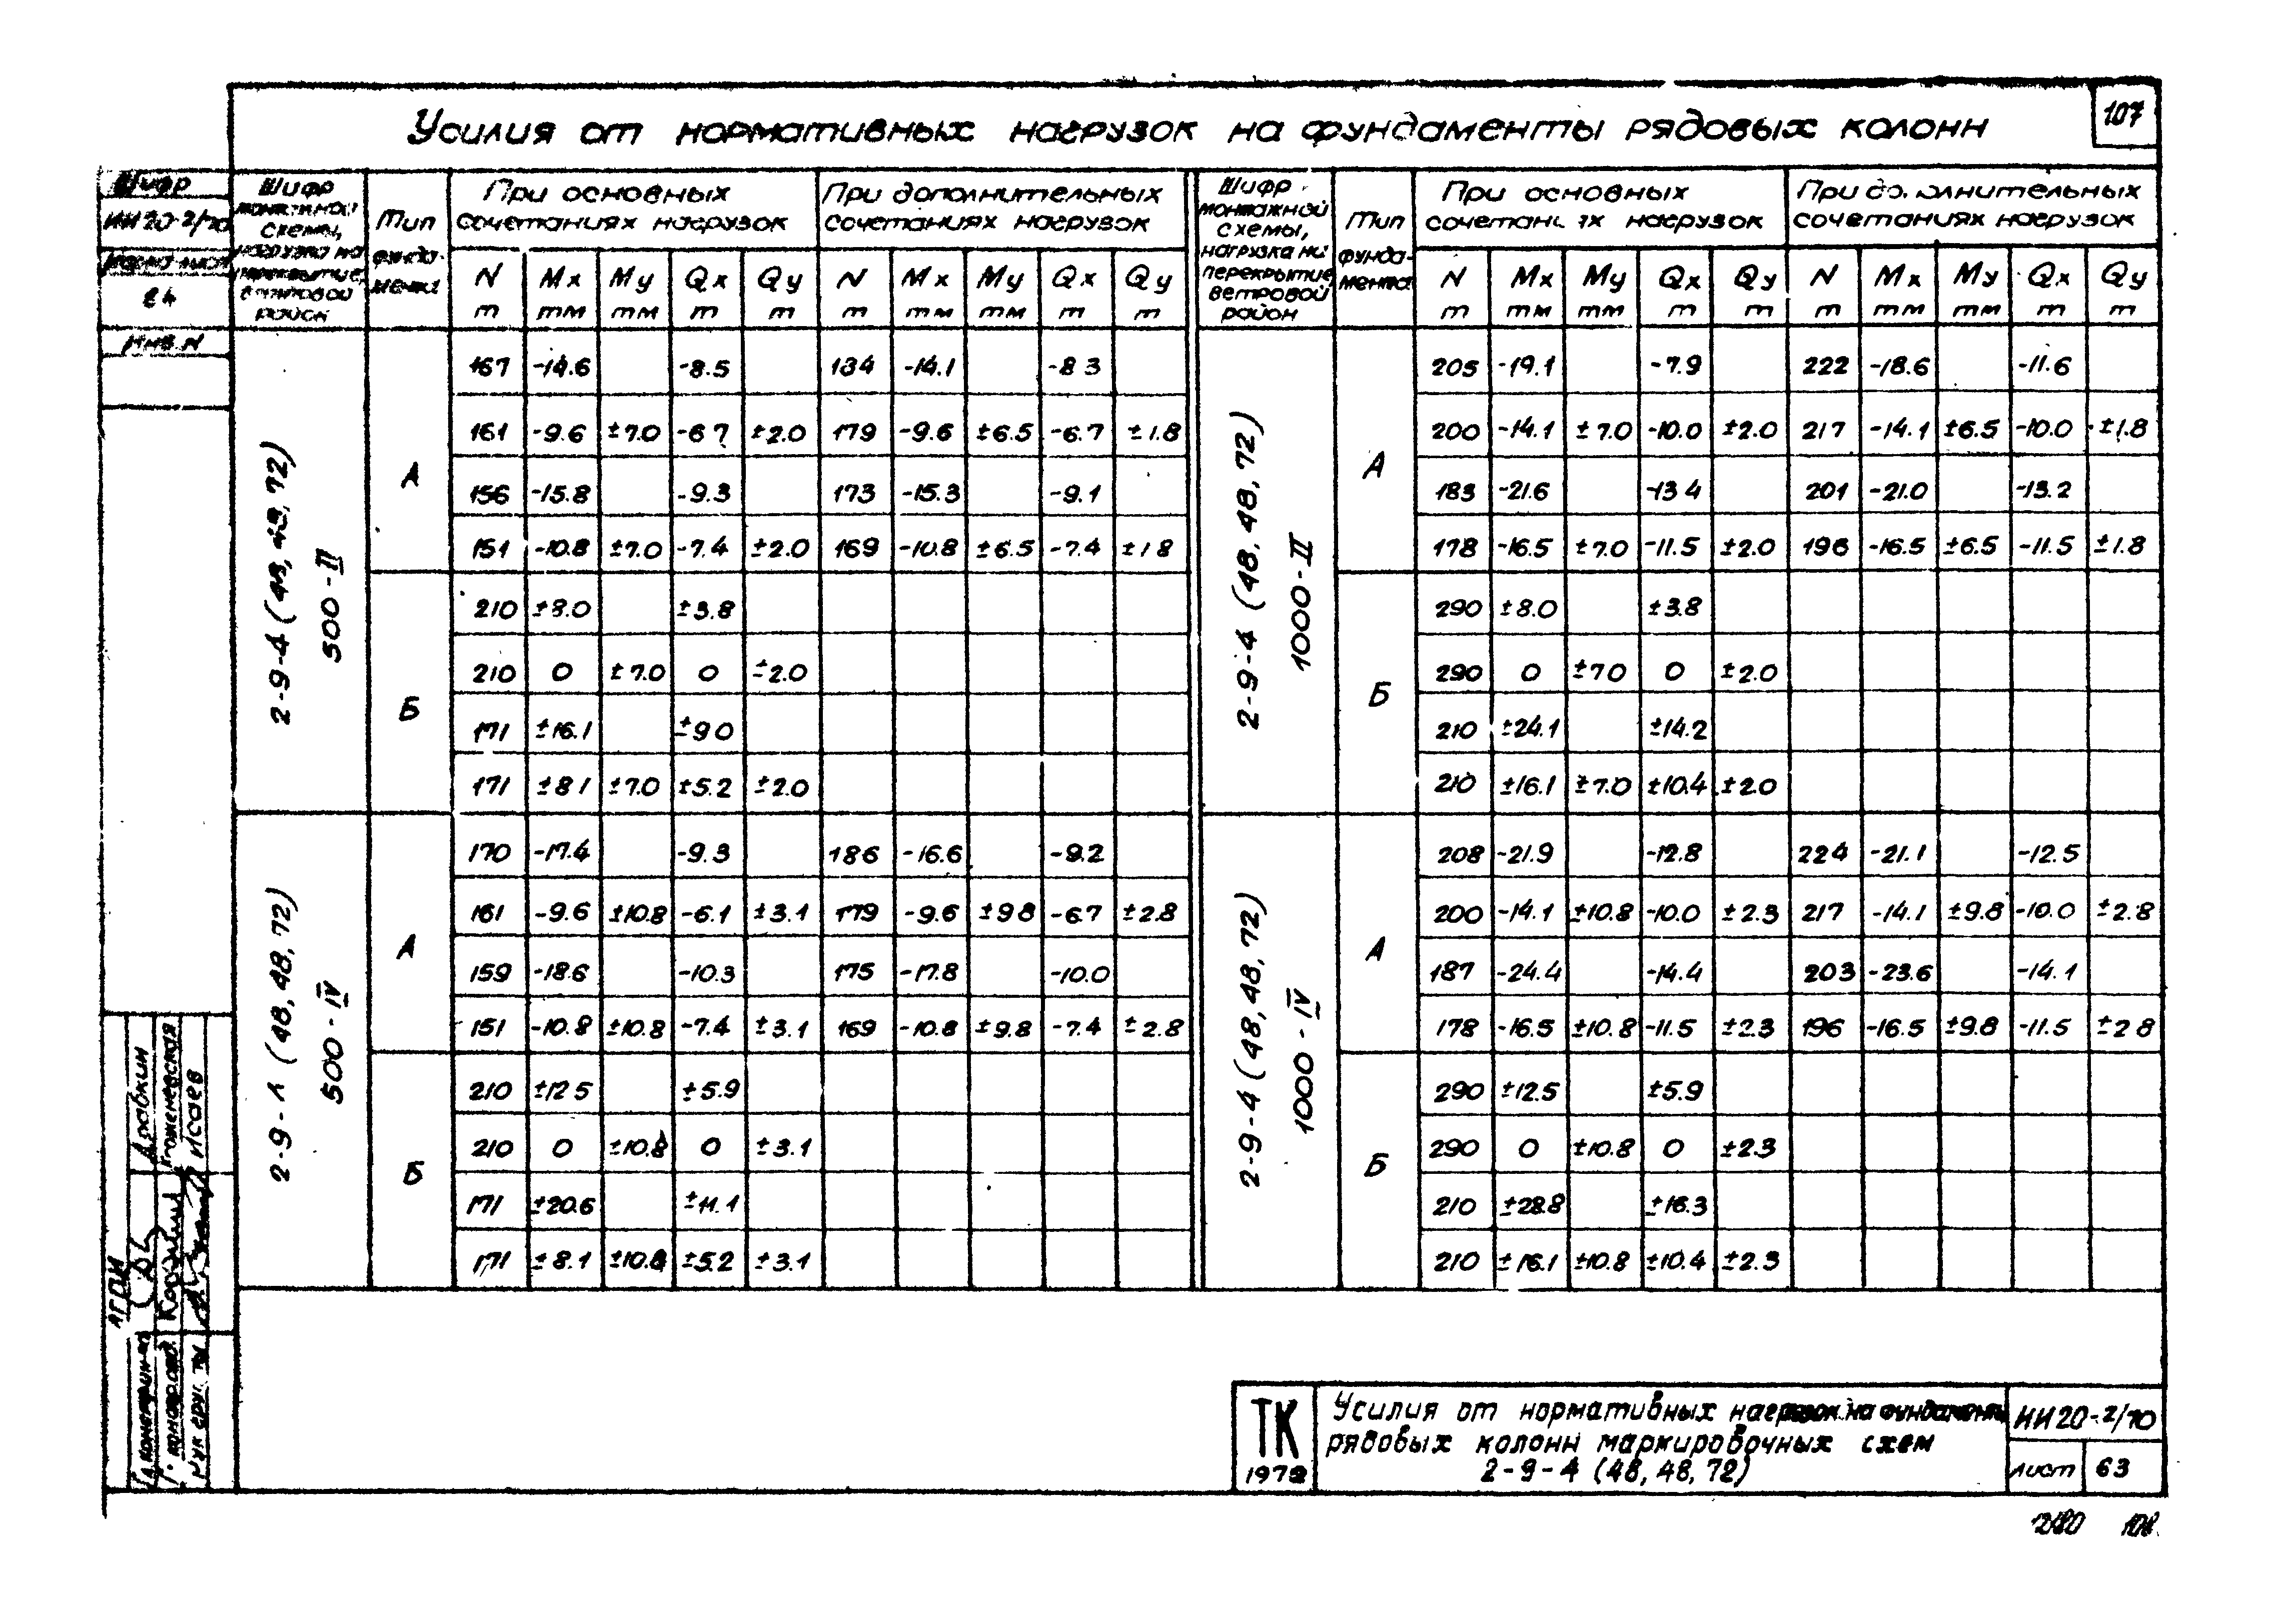 107
Усилия от нормативных нагрузок на фундаменты рядовых колонн
Шифр
ИИ20-2/70
Марка-лист
Инв. N
Шифр монтажной схемы, нагрузка на перекрытие, ветровой район
Тип фундамента
При основных сочетаниях нагрузок
При дополнительных сочетаниях нагрузок
N т Mx тм My тм Qx т Qy т N т Mx тм My тм Qx т Qy т
2-9-4 (48, 48, 72)
500-II
А
167 -14.6 -8.5 -14.1 -8 3
161 -9.6 ±7.0 -6 7 ±2.0 179 -9.6 ±6.5 -6.7 ±1.8
156 -15.8 -9.3 173 -15.3 -9.1
151 -10.8 ±7.0 -7.4 ±2.0 169 -10.8 ±6.5 -7.4 ±1 8
Б
210 ±8.0 ±3.8
210 0 ±7.0 0 ±2.0
171 ±16.1 ±9 0
171 ±8 1 ±7.0 ±5.2 ±2.0
2-9- (48, 48, 72)
500-IV
А
170 -17.4 -9.3 186 -16.6 -9.2
161 -9.6 ±10.8 -6.1 ±3.1 179 -9.6 ±9 8 -6.7 ±2.8
159 -18.6 -10.3 175 -17.8 -10.0
151 -10.8 ±10.8 -7.4 ±3.1 169 -10.8 ±9.8 -7.4 ±2.8
Б
210 ±12 5 ±5.9
210 0 ±10.8 0 ±3.1
171 ±20.6 ±11.1
171 ±8.1 ±10.8 ±5.2 ±3.1
Шифр монтажной схемы, нагрузка на перекрытие, ветровой район
Тип фундамента
При основных сочетаниях нагрузок
При дополнительных сочетаниях нагрузок
N т Mx тм My тм Qx т Qy т N т Mx тм My тм Qx т Qy т
2-9-4 (48, 48, 72)
1000-II
А
205 -19.1 -7.9 222 -18.6 -11.6
200 -14.1 ±7.0 -10.0 ±2.0 217 -14.1 ±6.5 -10.0 ±1.8
183 -21.6 -13 4 201 -21.0 -13.2
178 -16.5 ±7.0 -11.5 ±2.0 196 -16.5 ±6.5 -11.5 ±1.8
Б
290 ±8.0 ±3.8
290 0 ±7 0 0 ±2.0
210 ±24.1 ±14.2
210 ±16.1 ±7.0 ±10.4 ±2.0
2-9-4 (48, 48, 72)
1000-IV
А
208 -21.9 -12.8 224 -21.1 -12.5
200 -14.1 ±10.8 -10.0 ±2.3 217 -14.1 ±9.8 -10.0 ±2.8
187 -24.4 -14.4 203 -23.6 -14.1
178 -16.5 ±10.8 -11.5 ±2.3 196 -16.5 ±9.8 -11.5 ±2 8
Б
290 ±12.5 ±5.9
290 0 ±10.8 0 ±2.3
210 ±28.8 ±16.3
210 ±16.1 ±10.8 ±10.4 ±2.3
Драбкин
Исаев
ТК
Усилия от нормативных нагрузок на фундаменты
рядовых колонн маркировочных схем
2-9-4 (48, 48, 72)
ИИ20-2/70
лист 63